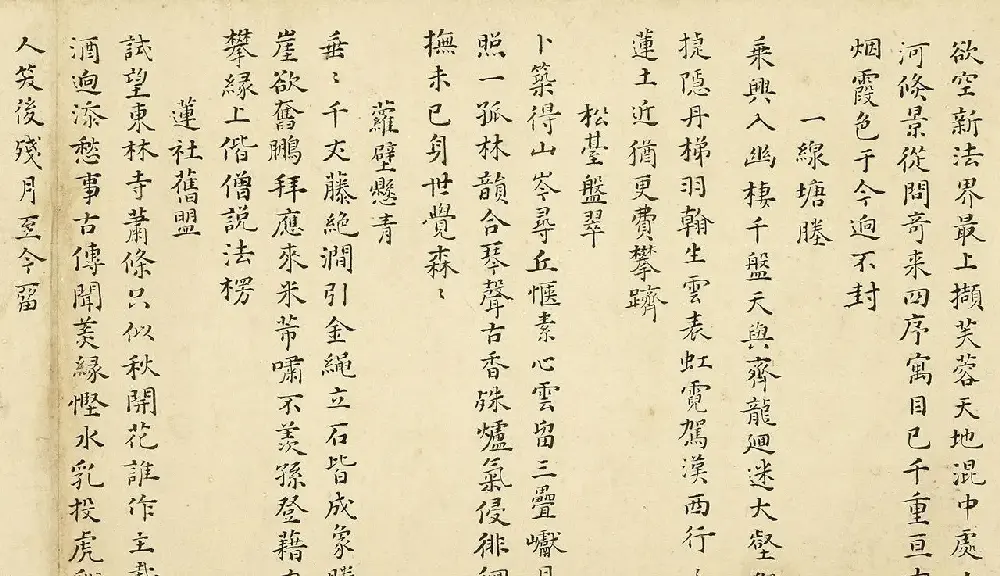 欲空新法界最上擷芙蓉天地混中處
河倐景從問奇来四序寓目已千重亘
烟霞色于今逈不封
一線塘塍
乘興入幽棲千盤天與齊龍迴迷大壑
捷隱丹梯羽翰生雲表虹霓駕漢西行
蓮土近猶更費攀躋
松䑓盤翠
卜築得山岑尋丘愜素心雲畱三疊巘
照一孤林韻合琴聲古香殊爐氣侵徘徊
撫未已身世覺森〻
蘿壁懸青
垂〻千丈藤絶澗引金繩立石皆成象
崖欲奮鵬拜應來米芾嘯不羨孫登藉
攀縁上偕僧説法楞
蓮社舊盟
試望東林寺蕭條只似秋開花誰作主
酒逈添愁事古傳聞羡縁慳水乳投虎
人笑後殘月至今畱